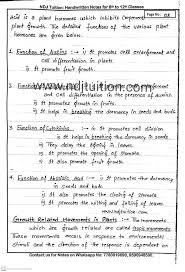 NDJ Tuition: Handwritten Notes for 6th to 12th Classes
Page No:
acid is a plant hormone which inhibits
plant growth. The detailed functions of the various plant
hormones are given below.
1. Function of Auxins :- i) It promotes cell enlargement and
cell differentiation in plants.
ii) It promotes fruit growth.
and cell differentiation in the presence of auxins.
ii) It promotes growth in fruits.
iii) It helps in breaking the dormancy in seeds and buds.
3. Function of Cytokinins :- i) It promotes cell division
ii) It helps in breaking the dormancy of seeds
iii) They delay the ageing in leaves.
iv) It promotes the opening of stomata.
v) It also promote fruit growth.
4. Function of Abscisic Acid :- i) It promotes the dormancy
in seeds and buds.
ii) It also promotes the closing of stomata.
iii) It promotes the wilting and falling of leaves
Growth Related Movements in Plants :- The movements
which are growth related are called tropic movements.
These movements occurs in response to environmental
stimuli and the direction of the response is dependent on
www.ndjtuition.com
Contact us for Notes on Whatsapp No